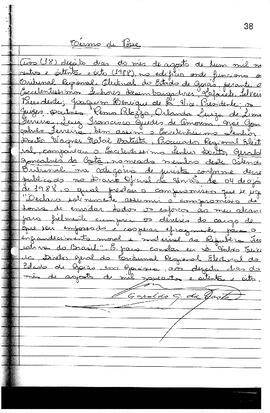 38
Termo de Posse
Aos (18) dezoito dias do mês de agosto de hum mil no
vecentos e oitenta e oito (1988), no edifício onde funciona o
Tribunal Regional Eleitoral do Estado de Goiás, perante os
Excelentíssimos Senhores Desembargadores
Presidente, Joaquim Henrique de Sá Vice Presidente, os
Juízes Orlando Luiza de Lima
Ferreira, Luiz Francisco Guedes de Amorim
Ferreira bem assim o Excelentíssimo Senhor
Doutor Wagner Natal Batista Procurador Regional Eleito
ral, compareceu o Excelentíssimo Senhor Doutor Geraldo
Gonçalves da Costa nomeado membro deste Colendo
Tribunal na categoria de jurista conforme decre
publicado no Diário da de 04 de
de 1988, o qual prestou o compromisso que se
"Declaro solenemente assumir o compromisso de
honra de envidar todos os esforços ao meu alcance
para fielmente cumprir os deveres do cargo em
que sou empossado e cooperar para o
engrandecimento moral e material da República Fede
rativa do Brasil". E, para constar eu
Diretor Geral do Tribunal Regional Eleitoral do
Estado de Goiás, em Goiânia, aos dezoito dias do
mês de agosto de mil novecentos e oitenta e oito.
Geraldo G. da Costa